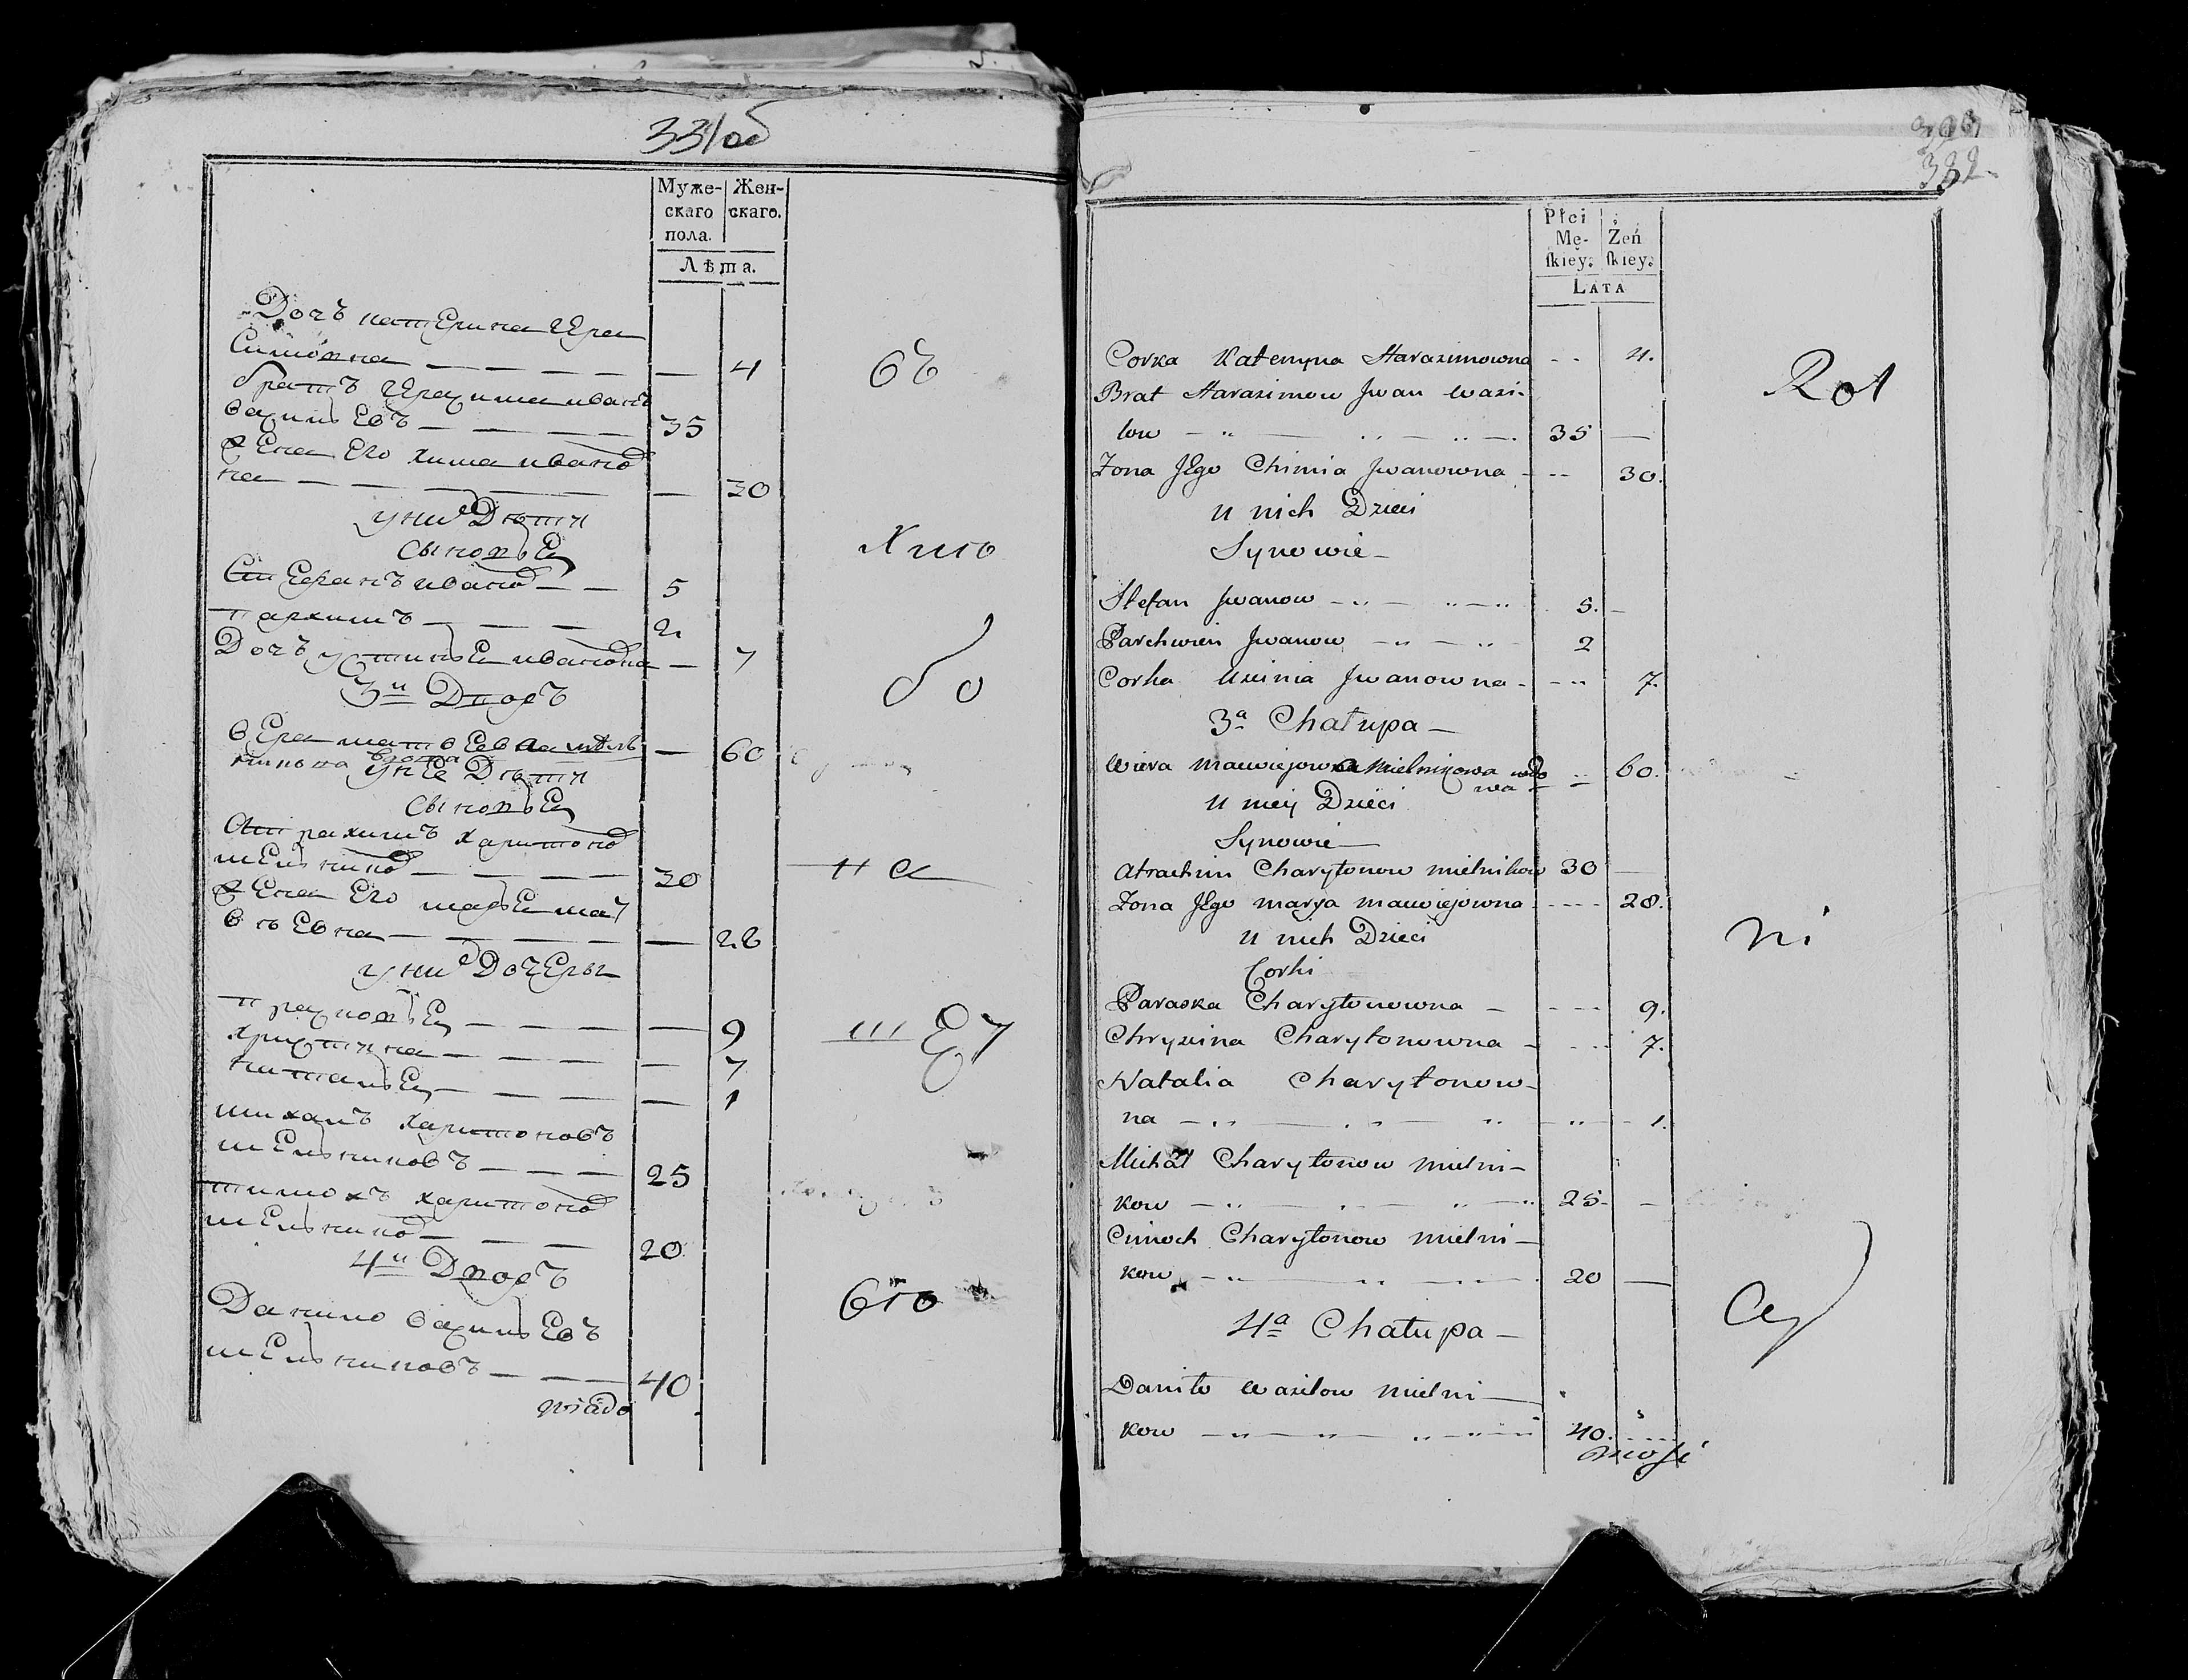 331об
Муже- Жен-
скаго скаго.
пола.
Лѣта.
Дочъ катерина Гера
симовна — — — — — 4
братъ Герасима иванъ
василъевъ — — — — 35
жена его хима ивановъ
на — — — — — — 30
у них Дѣти
сыновъя
Стефанъ ивановъ — — 5
пархимъ — — — — 2
Дочъ устинъя ивановна — 7
3й Дворъ
вера матвеева мелъ — 60
никова вдова
у нее Дѣти
сыновъя
Атрахимъ харитоновъ
мелъниковъ — — — — 30
жена его маръя мат
вѣевна — — — — — — 28
у них Дочеры
прасковъя — — — — 9
христина — — — — — 7
наталъя — — — — — 1
михалъ харитоновъ
мелъниковъ — — — 25
тимохъ харитоновъ
мелъниковъ — — — 20
4й Дворъ
Данило василъевъ
мелъниковъ — — — 40
wiado
бъ
на
332
Płci Żeń
Mę- skiey.
skiey.
LATA
Corka Kateryna Harazimowna - - 4.
Brat Harazimow Jwan Wasi-
low — „ — „ — „ — 35 —
Zona Jego Chimia Jwanowna - -- 30.
u nich Dzieci
Synowie —
Stefan Jwanow — „ — „ — „ 5. —
Parchwien Jwanow — „ — „ 2
Corka Uscinia Jwanowna - - „ 7.
3a Chałupa —
Wiera Maciejowna Mielnikowa wdo „ 60.
wa —
u niey Dzieci
Synowie —
Atrachim Charytonow Mielnikow 30 —
Zona Jego Marya Maciejowna - - - - 28.
u nich Dzieci
Corki
Paraska Charytonowna — - - - 9.
Chryscina Charytonowna — - - „ 7.
Natalia Charytonow-
na — „ — „ — „ — „ — 1.
Michał Charytonow Mielni-
kow — „ — „ — „ — „ 25 —
Cimoch Charytonow Mielni-
kow — „ — „ — — . 20 —
4a Chałupa —
Daniło Wasilow Mielni —
kow — „ — „ „ — „ — „ 40.
Rot
ni